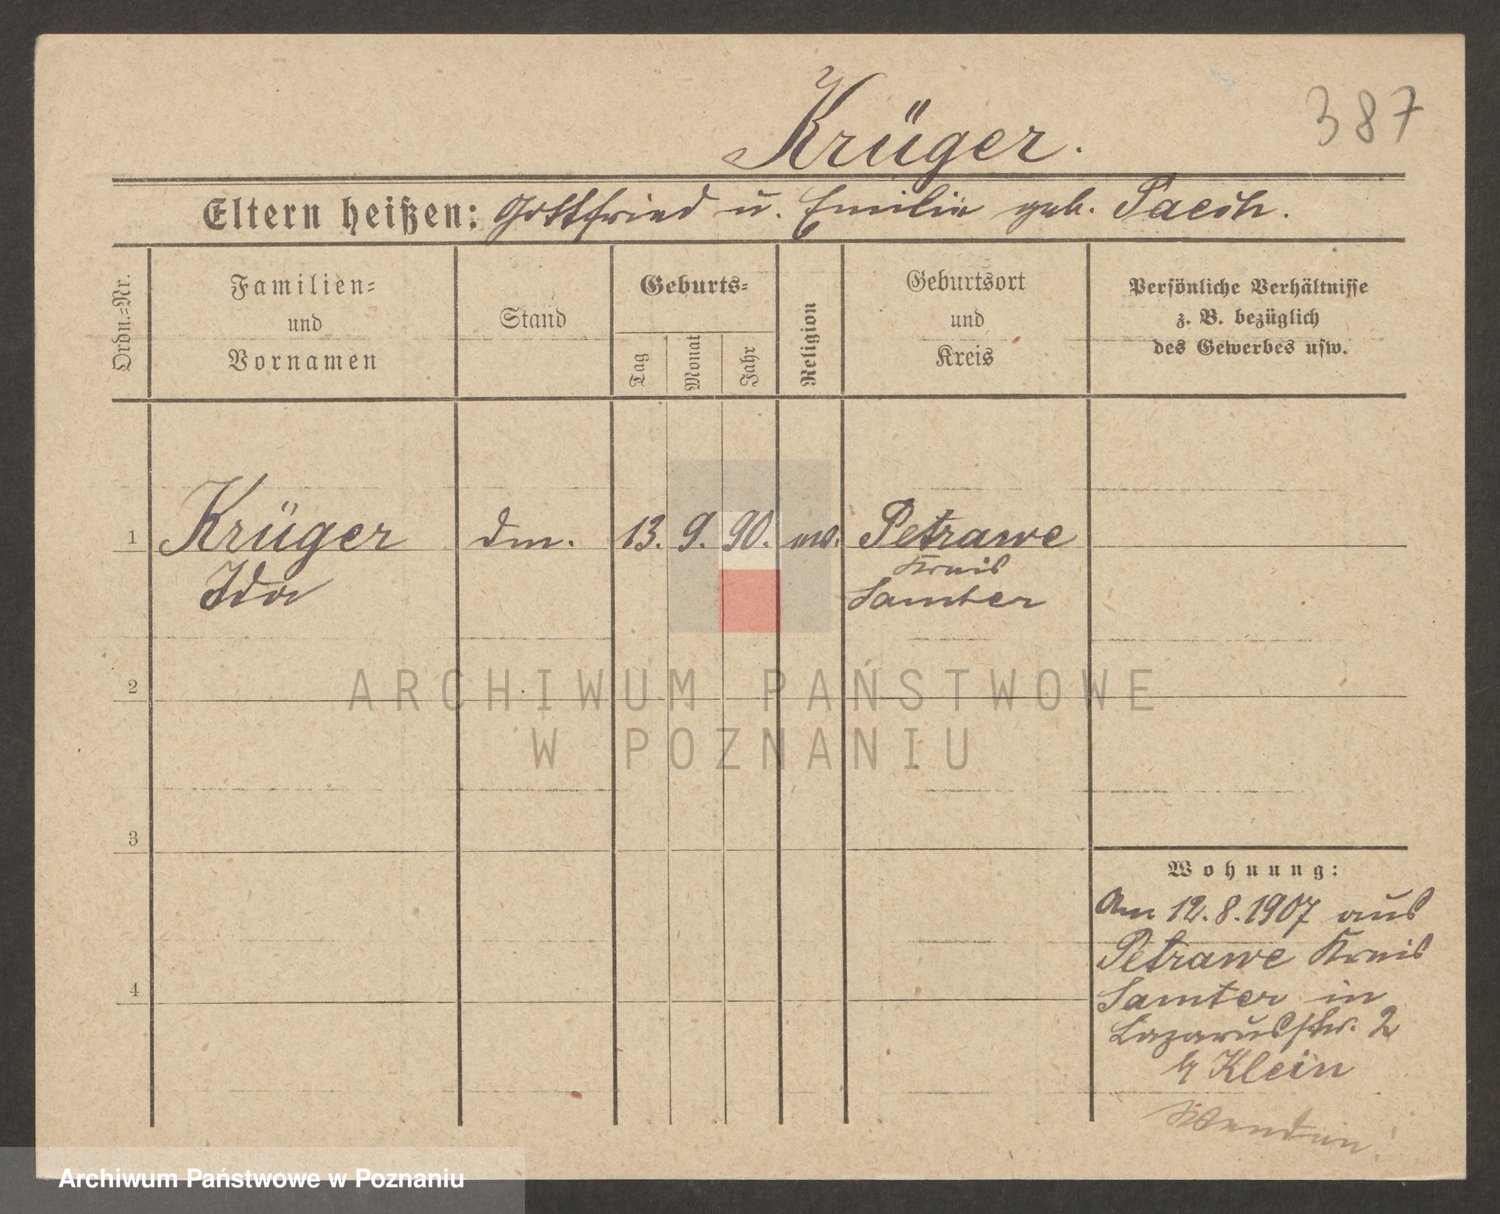 387
Krüger.
Eltern heißen: Gottfried u. Emilie geb. Paech.
Ordn.-Nr.
Familien- und Vornamen
Stand
Geburts-
Tag
Monat
Jahr
Religion
Geburtsort und Kreis
Persönliche Verhältnisse
z. B. bezüglich
des Gewerbes usw.
1 Krüger dm. 13. 9. 90. ev. Petrawe
Kreis
Ida Samter
2
ARCHIWUM PAŃSTWOWE
W POZNANIU
3
Wohnung:
Am 12.8.1907 aus
Petrawe Kreis
4
Samter in
Lazarusstr. 2
b/ Klein
Wenden!
Archiwum Państwowe w Poznaniu